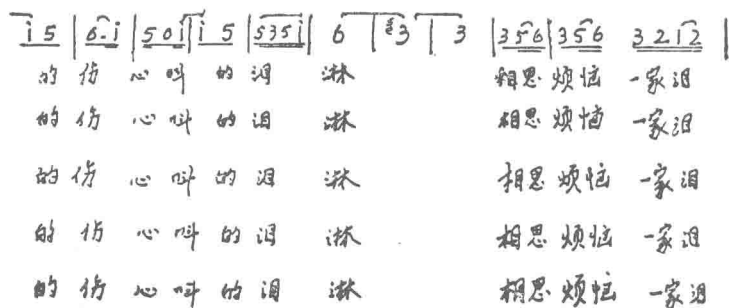 i 5 | 6. i | 5 0 i | i 5 | 5 3 5 i | 6 | 3 | 3 | 3 5 6 | 3 5 6 3 2 1 2 |
的伤 心叫的泪 淋 相思烦恼 一家泪
的伤 心叫的泪 淋 相思烦恼 一家泪
的伤 心叫的泪 淋 相思烦恼 一家泪
的伤 心叫的泪 淋 相思烦恼 一家泪
的伤 心叫的泪 淋 相思烦恼 一家泪